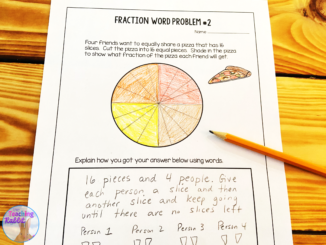 FRACTION WORD PROBLEM #2
Name
Four friends want to equally share a pizza that has 16
slices. Cut the pizza into 16 equal pieces. Shade in the pizza
to show what fraction of the pizza each friend will get.
Explain how you got your answer below using words.
16 pieces and 4 people. Give
each person a slice and then
another slice and keep going
until there are no slices left
Person 1 Person 2 Person 3 Person 4
Teaching
Rabbit